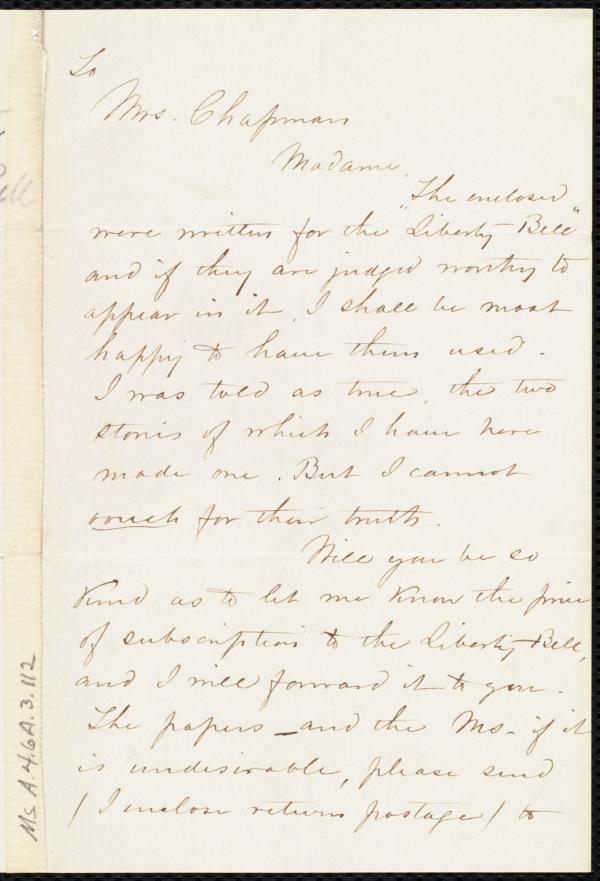 To
Mrs. Chapman
Madame,
The enclosed
were written for the "Liberty Bell"
and if they are judged worthy to
appear in it, I shall be most
happy to have them used.
I was told as true, the two
stories of which I have here
made one. But I cannot
vouch for their truth.
Will you be so
kind as to let me know the price
of subscription to the Liberty Bell,
and I will forward it to you.
The papers - and the Ms. if it
is undesirable, please send
(I enclose return postage) to
Ms. A.4.6A.3.112